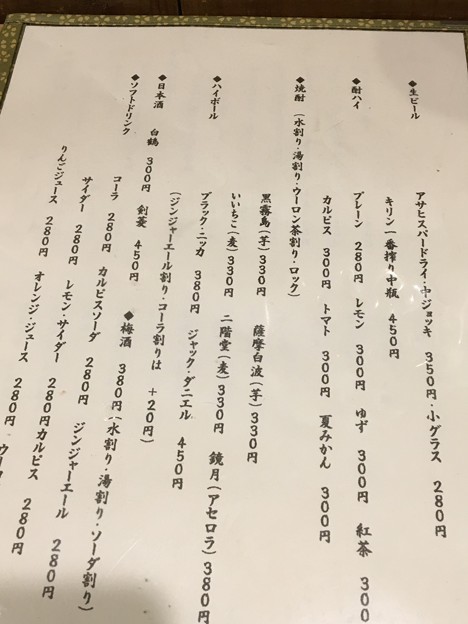 ◆生ビール
アサヒスパードライ・中ジョッキ 350円・小グラス 280円
キリン一番搾り中瓶 450円
◆酎ハイ
プレーン 280円 レモン 300円 ゆず 300円 紅茶 300
カルピス 300円 トマト 300円 夏みかん 300円
◆焼酎（水割り・湯割り・ウーロン茶割り・ロック）
黒霧島（芋）330円 薩摩白波（芋）330円
いいちこ（麦）330円 二階堂（麦）330円 鏡月（アセロラ）380円
◆ハイボール
ブラック・ニッカ 380円 ジャック・ダニエル 450円
（ジンジャーエール割り・コーラ割りは +20円）
◆日本酒 白鶴 300円 剣菱 450円 ◆梅酒 380円（水割り・湯割り・ソーダ割り）
◆ソフトドリンク
コーラ 280円 カルピスソーダ 280円 ジンジャーエール 280円
サイダー 280円 レモン・サイダー 280円カルピス 280円
りんごジュース 280円 オレンジ・ジュース 280円